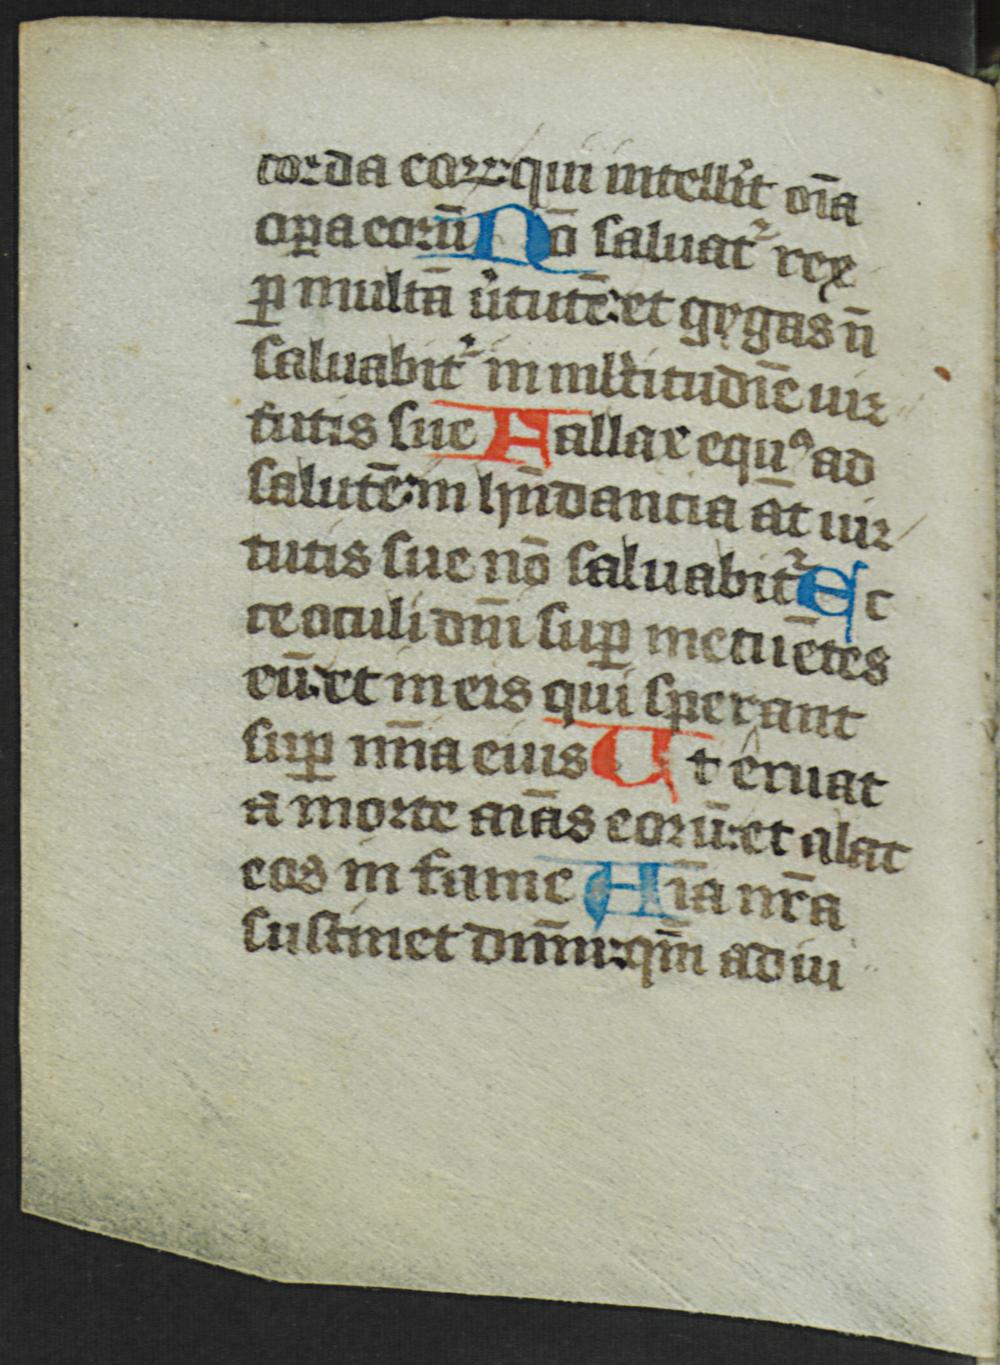 corda eorr: qui intell̾it oīa
oꝑa eorū Nō saluat᷑ rex
ꝑ multā u̾tutē: et gygas n̄
saluabit᷑ in ml̾titudīe uir
tutis sue Fallax equꝰ ad
salutē: in hn̄dancia āt uir
tutis sue nō saluabit᷑ Ec
ce oculi dn̄i suꝑ metuētes
eū: et in eis qui sperant
suꝑ mīa eius Ut eruat
a morte aīas eorū: et alat
eos in fame Aīa nr̄a
sustinet dn̄m: qm̄ adiu